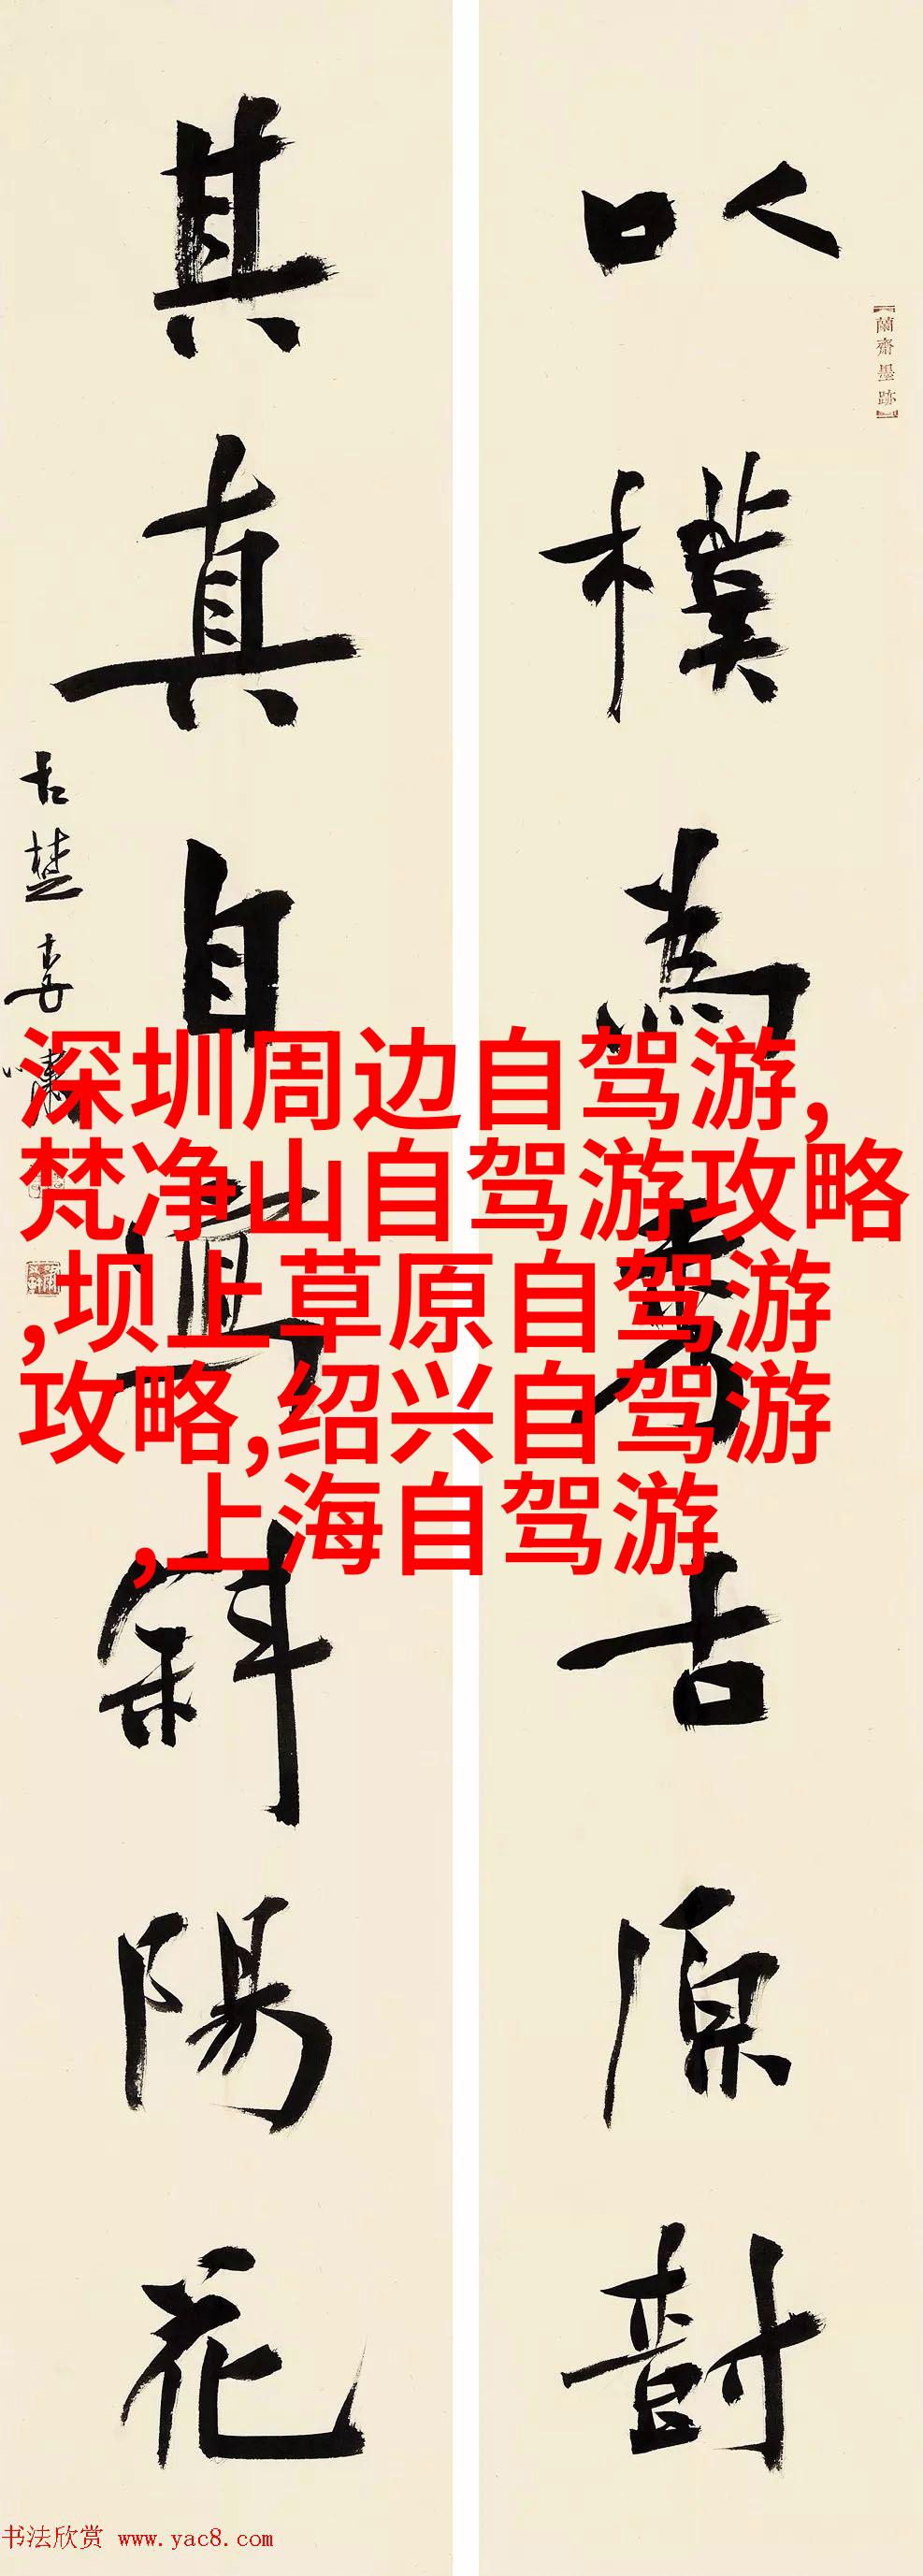 【蘭齋墨跡】
以樸為秀古原樹
其真自寫斜陽花
古楚
深圳周边自驾游,
梵净山自驾游攻略
,坝上草原自驾游
攻略,绍兴自驾游
,上海自驾游
书法欣赏 www.yac8.com